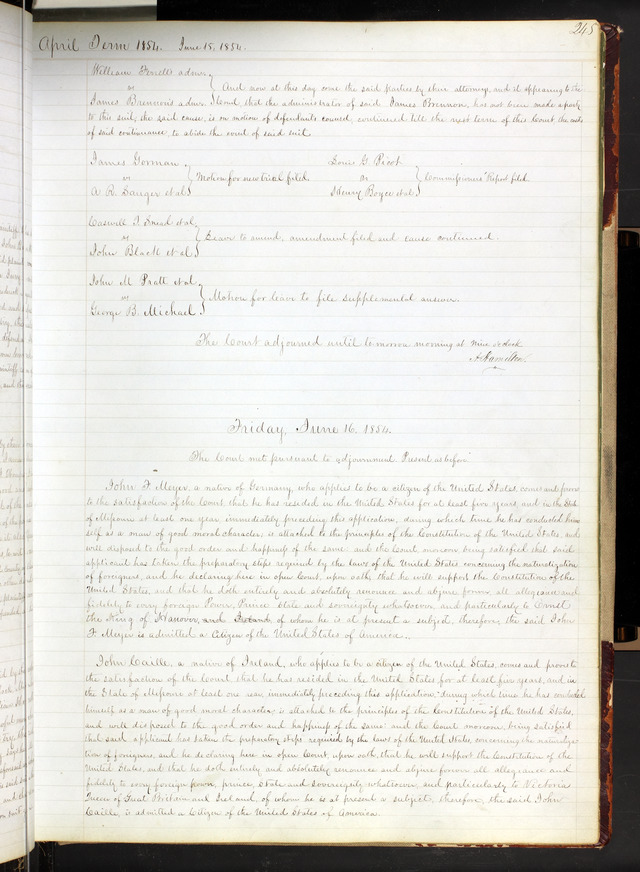 245
April Term 1854. June 15, 1854.
William Ferrell admr
vs
James Brennon's admr
And now at this day come the said parties by their attorneys, and it appearing to the
Court, that the administrator of said James Brennon, has not been made a party
to this suit, the said cause, is on motion of defendants counsel, continued till the next term of this Court, the costs
of said continuance, to abide the event of said suit.
James Gorman
vs
A R. Sanger et al
Motion for new trial filed.
Louis G. Picot
vs
Henry Boyce et al
Commissioners' Report filed.
Caswell T. Snead et al
vs
John Black et al
Leave to amend, amendment filed and cause continued.
John M Pratt et al
vs
George B. Michael
Motion for leave to file supplemental answer.
The Court adjourned until tomorrow morning at nine o clock
A Hamilton
Friday, June 16, 1854.
The Court met pursuant to adjournment Present as before
John F Meyer, a native of Germany who applies to be a citizen of the United States, comes and proves
to the satisfaction of the Court that he has resided in the United States for at least five years, and in the State
of Missouri at least one year, immediately preceding this application, during which time he has conducted him
self as a man of good moral character, is attached to the principles of the Constitution of the United States, and
well disposed to the good order and happiness of the same: and the Court moreover being satisfied that said
applicant has taken the preparatory steps required by the laws of the United States concerning the naturalization
of foreigners, and he declaring here in open Court, upon oath, that he will support the Constitution of the
United States, and that he doth entirely and absolutely renounce and abjure forever all allegiance and
fidelity to every foreign Power, Prince State and sovereignty whatsoever, and particularly to Ernest
the King of Hanover, and Ireland, of whom he is at present a subject, therefore, the said John
F. Meyer is admitted a Citizen of the United States of America.
John Caille, a native of Ireland, who applies to be a citizen of the United States, comes and proves to
the satisfaction of the Court that he has resided in the United States for at least five years, and in
the State of Missouri at least one year immediately preceding this application, during which time he has conducted
himself as a man of good moral character, is attached to the principles of the Constitution of the United States,
and well disposed to the good order and happiness of the same: and the Court moreover, being satisfied
that said applicant has taken the preparatory steps required by the laws of the United States, concerning the naturaliza
tion of foreigners, and he declaring here in open Court, upon oath, that he will support the Constitution of the
United States, and that he doth entirely and absolutely renounce and abjure forever all allegiance and
fidelity to every foreign power, prince, state and sovereignty whatsoever, and particularly to Victoria
Queen of Great Britain and Ireland, of whom he is at present a subject, therefore, the said John
Caille, is admitted a Citizen of the United States of America.